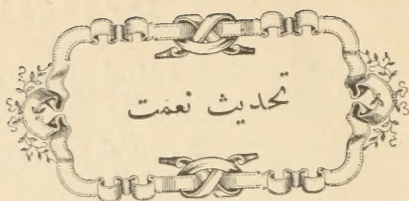 تحديث نعمت